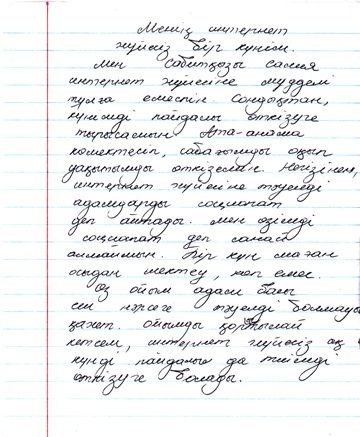 Менің интернет
жүйесіз бір күнім.
Мен Сабитқызы
интернет жүйесіне мүдделі
тұлға емеспін. Сондықтан,
күнімді пайдалы өткізуге
тырысамын Ата-анама
көмектесіп, сабағымды оқып
уақытымды өткіземін. Негізінен,
интернет жүйесіне тәуелді
адамдарды социопат
деп айтады. Мен өзімді
социапат деп санай
алмаймын. Бір күн маған
осыдан шектеу, көп емес.
Өз ойым адам баласы
еш нәрсеге тәуелді болмауы
қажет. Ойымды қорытылай
кетсем, интернет жүйесіз ақ
күнді пайдалы да тиімді
өткізуге болады.